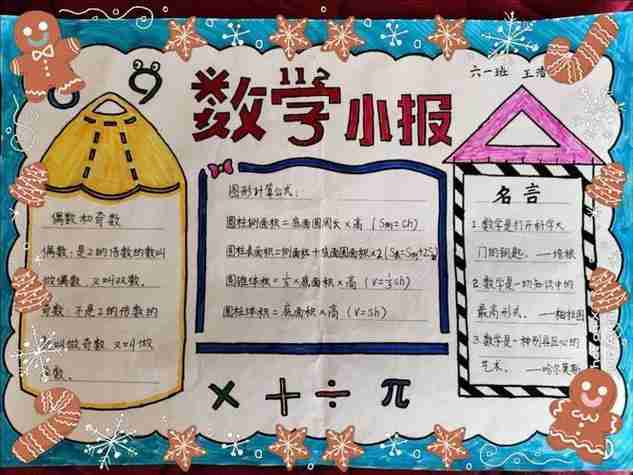 数学小报
112
六一班 王浩
偶数和奇数
偶数:是2的倍数的数叫
做偶数,又叫双数。
奇数:不是2的倍数的
数叫做奇数,又叫做
单数。
图形计算公式:
圆柱侧面积=底面圆周长×高(S侧=Ch)
圆柱表面积=侧面积+底面圆面积×2(S表=S侧+2S
圆锥体积=⅓×底面积×高(V=⅓Sh)
圆柱体积=底面积×高(V=Sh)
名言
1.数学是打开科学大
门的钥匙。——培根
2.数学是一切知识中的
最高形式。——柏拉图
3.数学是一种别具匠心的
艺术。——哈尔莫斯
× + ÷ π